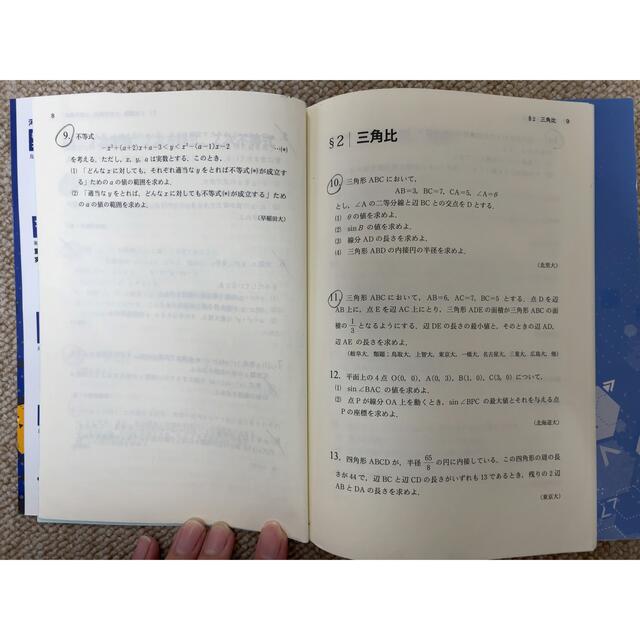 8
9. 不等式
−x²+(a+2)x+a−3<y<x²−(a−1)x−2 …(*)
を考える．ただし，x, y, a は実数とする．このとき，
(1) 「どんな x に対しても，それぞれ適当な y をとれば不等式(*)が成立す
る」ための a の値の範囲を求めよ．
(2) 「適当な y をとれば，どんな x に対しても不等式(*)が成立する」ため
の a の値の範囲を求めよ．
(早稲田大)
§2 三角比 9
§2 三角比
10. 三角形 ABC において，
AB=3, BC=7, CA=5, ∠A=θ
とし，∠A の二等分線と辺 BC との交点を D とする．
(1) θ の値を求めよ．
(2) sin B の値を求めよ．
(3) 線分 AD の長さを求めよ．
(4) 三角形 ABD の内接円の半径を求めよ．
(北里大)
11. 三角形 ABC において，AB=6, AC=7, BC=5 とする．点 D を辺
AB 上に，点 E を辺 AC 上にとり，三角形 ADE の面積が三角形 ABC の面
積の 1/3 となるようにする．辺 DE の長さの最小値と，そのときの辺 AD，
辺 AE の長さを求めよ．
(岐阜大，類題；鳥取大，上智大，東京大，一橋大，名古屋大，三重大，広島大，他)
12. 平面上の 4 点 O(0, 0), A(0, 3), B(1, 0), C(3, 0) について，
(1) sin∠BAC の値を求めよ．
(2) 点 P が線分 OA 上を動くとき，sin∠BPC の最大値とそれを与える点
P の座標を求めよ．
(北海道大)
13. 四角形 ABCD が，半径 65/8 の円に内接している．この四角形の周の長
さが 44 で，辺 BC と辺 CD の長さがいずれも 13 であるとき，残りの 2 辺
AB と DA の長さを求めよ．
(東京大)